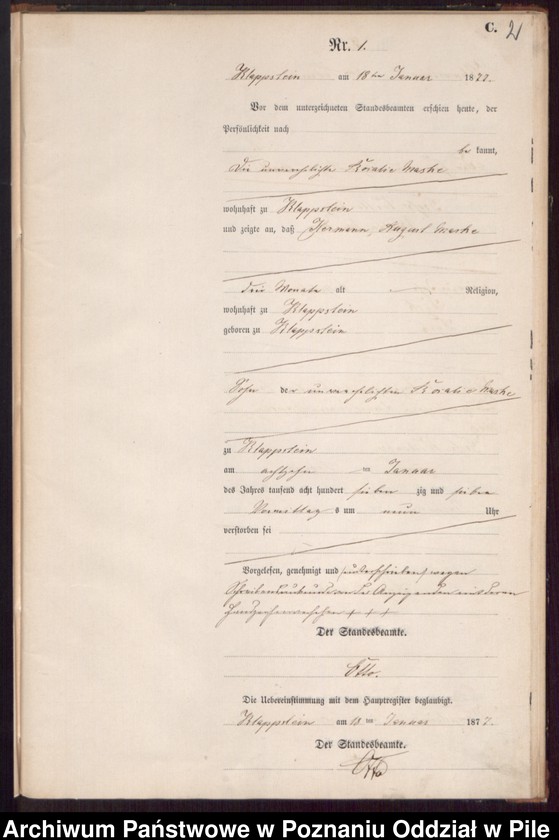 C. 2
Nr. 1.
Klappstein am 18ten Januar 1877.
Vor dem unterzeichneten Standesbeamten erschien heute, der
Persönlichkeit nach
be kannt,
die unverehelichte Rosalie Maske
wohnhaft zu Klappstein
und zeigte an, daß Hermann, August Maske
drei Monate alt Religion,
wohnhaft zu Klappstein
geboren zu Klappstein
Sohn der unverehelichten Rosalie Maske
zu Klappstein
am achtzehn ten Januar
des Jahres tausend acht hundert sieben zig und sieben
Vormittags um neun Uhr
verstorben sei
Vorgelesen, genehmigt und (unterschrieben) wegen
Schreibensunkunde der Anzeigenden mit deren
Handzeichen versehen + + +
Der Standesbeamte.
Otto.
Die Uebereinstimmung mit dem Hauptregister beglaubigt.
Klappstein am 18 ten Januar 1877.
Der Standesbeamte.
Otto
Archiwum Państwowe w Poznaniu Oddział w Pile